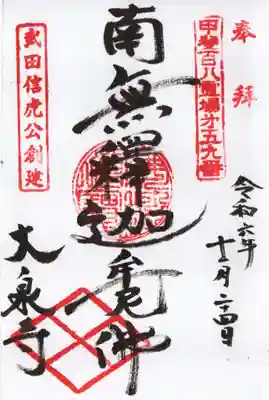 奉拝
甲斐百八霊場才五十九番
令和六年
十二月二十四日
南無釋迦牟尼佛
武田信虎公創建
大泉寺